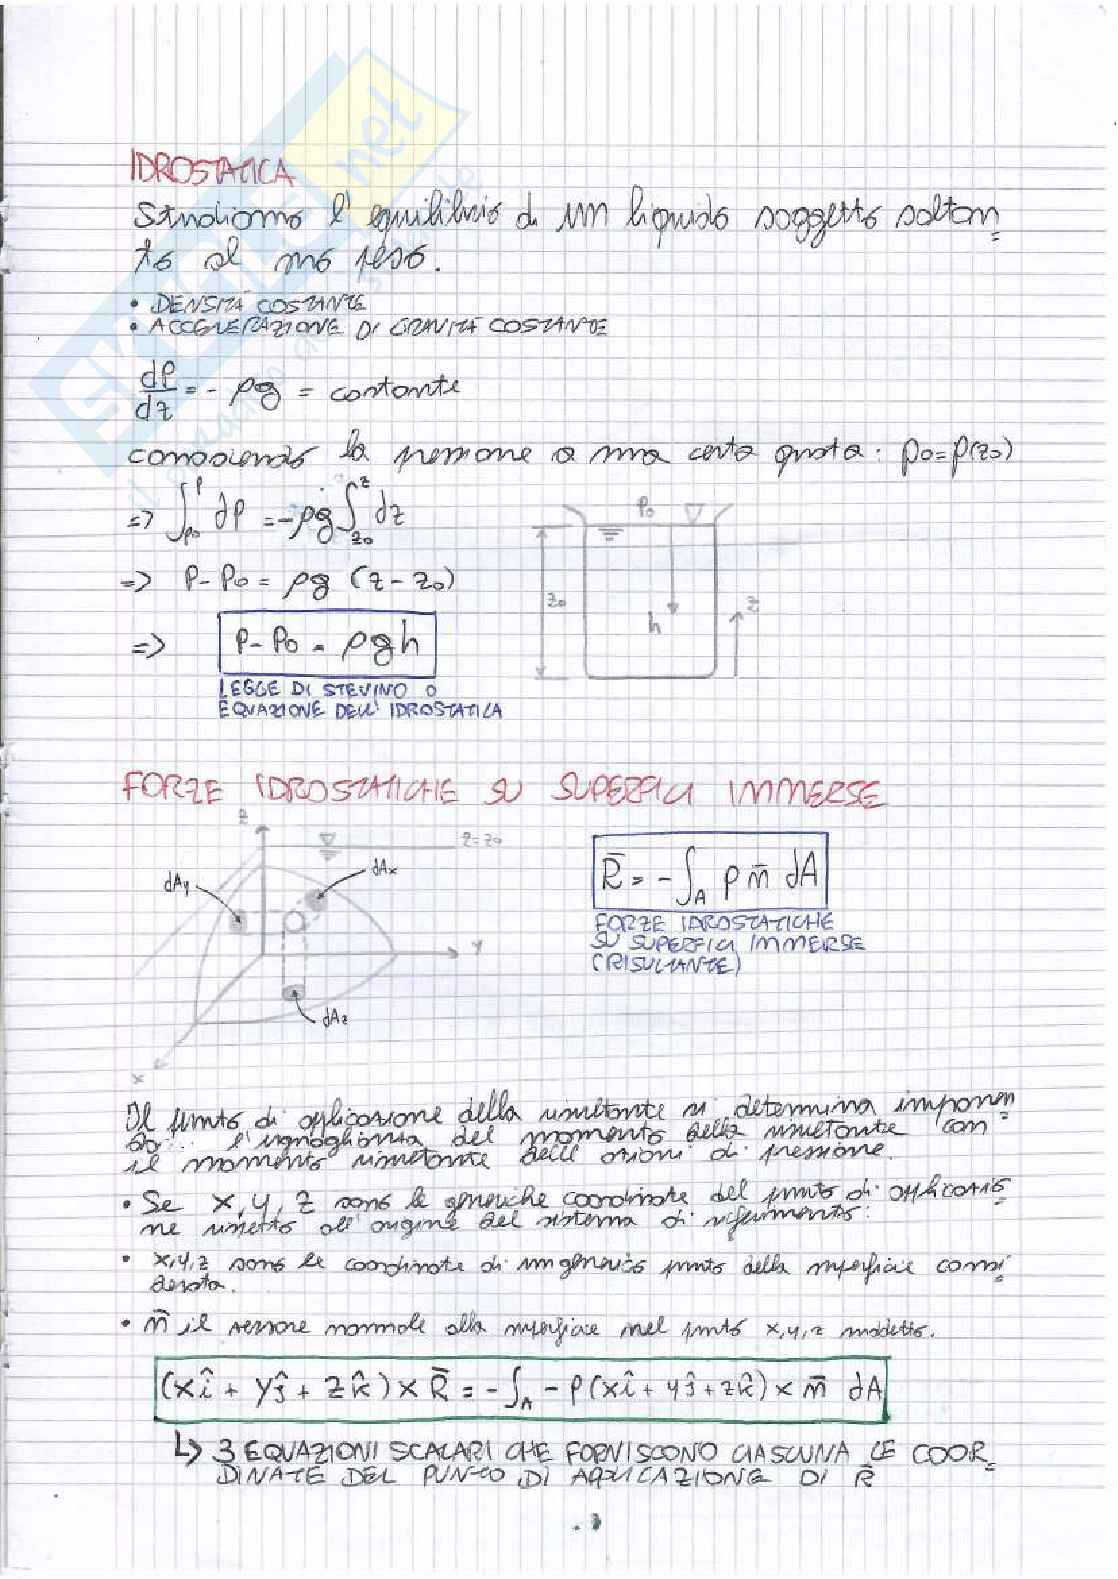 IDROSTATICA
Studiamo l'equilibrio di un liquido soggetto soltan=
to al suo peso.
• DENSITÀ COSTANTE
• ACCELERAZIONE DI GRAVITÀ COSTANTE
dP/dz = - ρg = costante
conoscendo la pressione a una certa quota: p0=p(z0)
=> ∫_{p0}^{P} dP = -ρg ∫_{z0}^{z} dz
P0
z0
h
z
=> P-P0 = ρg (z-z0)
=> P-P0 = ρgh
LEGGE DI STEVINO O
EQUAZIONE DELL'IDROSTATICA
FORZE IDROSTATICHE SU SUPERFICI IMMERSE
z
z=z0
dAx
dAy
y
dAz
x
R̄ = -∫_A p n̄ dA
FORZE IDROSTATICHE
SU SUPERFICI IMMERSE
(RISULTANTE)
Il punto di applicazione della risultante si determina imponen
do... l'uguaglianza del momento della risultante con
il momento risultante delle azioni di pressione.
• Se x, y, z sono le generiche coordinate del punto di applicazio=
ne rispetto all'origine del sistema di riferimento:
• x,y,z sono le coordinate di un generico punto della superficie consi=
derata.
• n̄ il versore normale alla superficie nel punto x,y,z suddetto.
(xî + yĵ + zk̂) × R̄ = -∫_A - p(xî + yĵ + zk̂) × n̄ dA
↳ 3 EQUAZIONI SCALARI CHE FORNISCONO CIASCUNA LE COOR=
DINATE DEL PUNTO DI APPLICAZIONE DI R̄